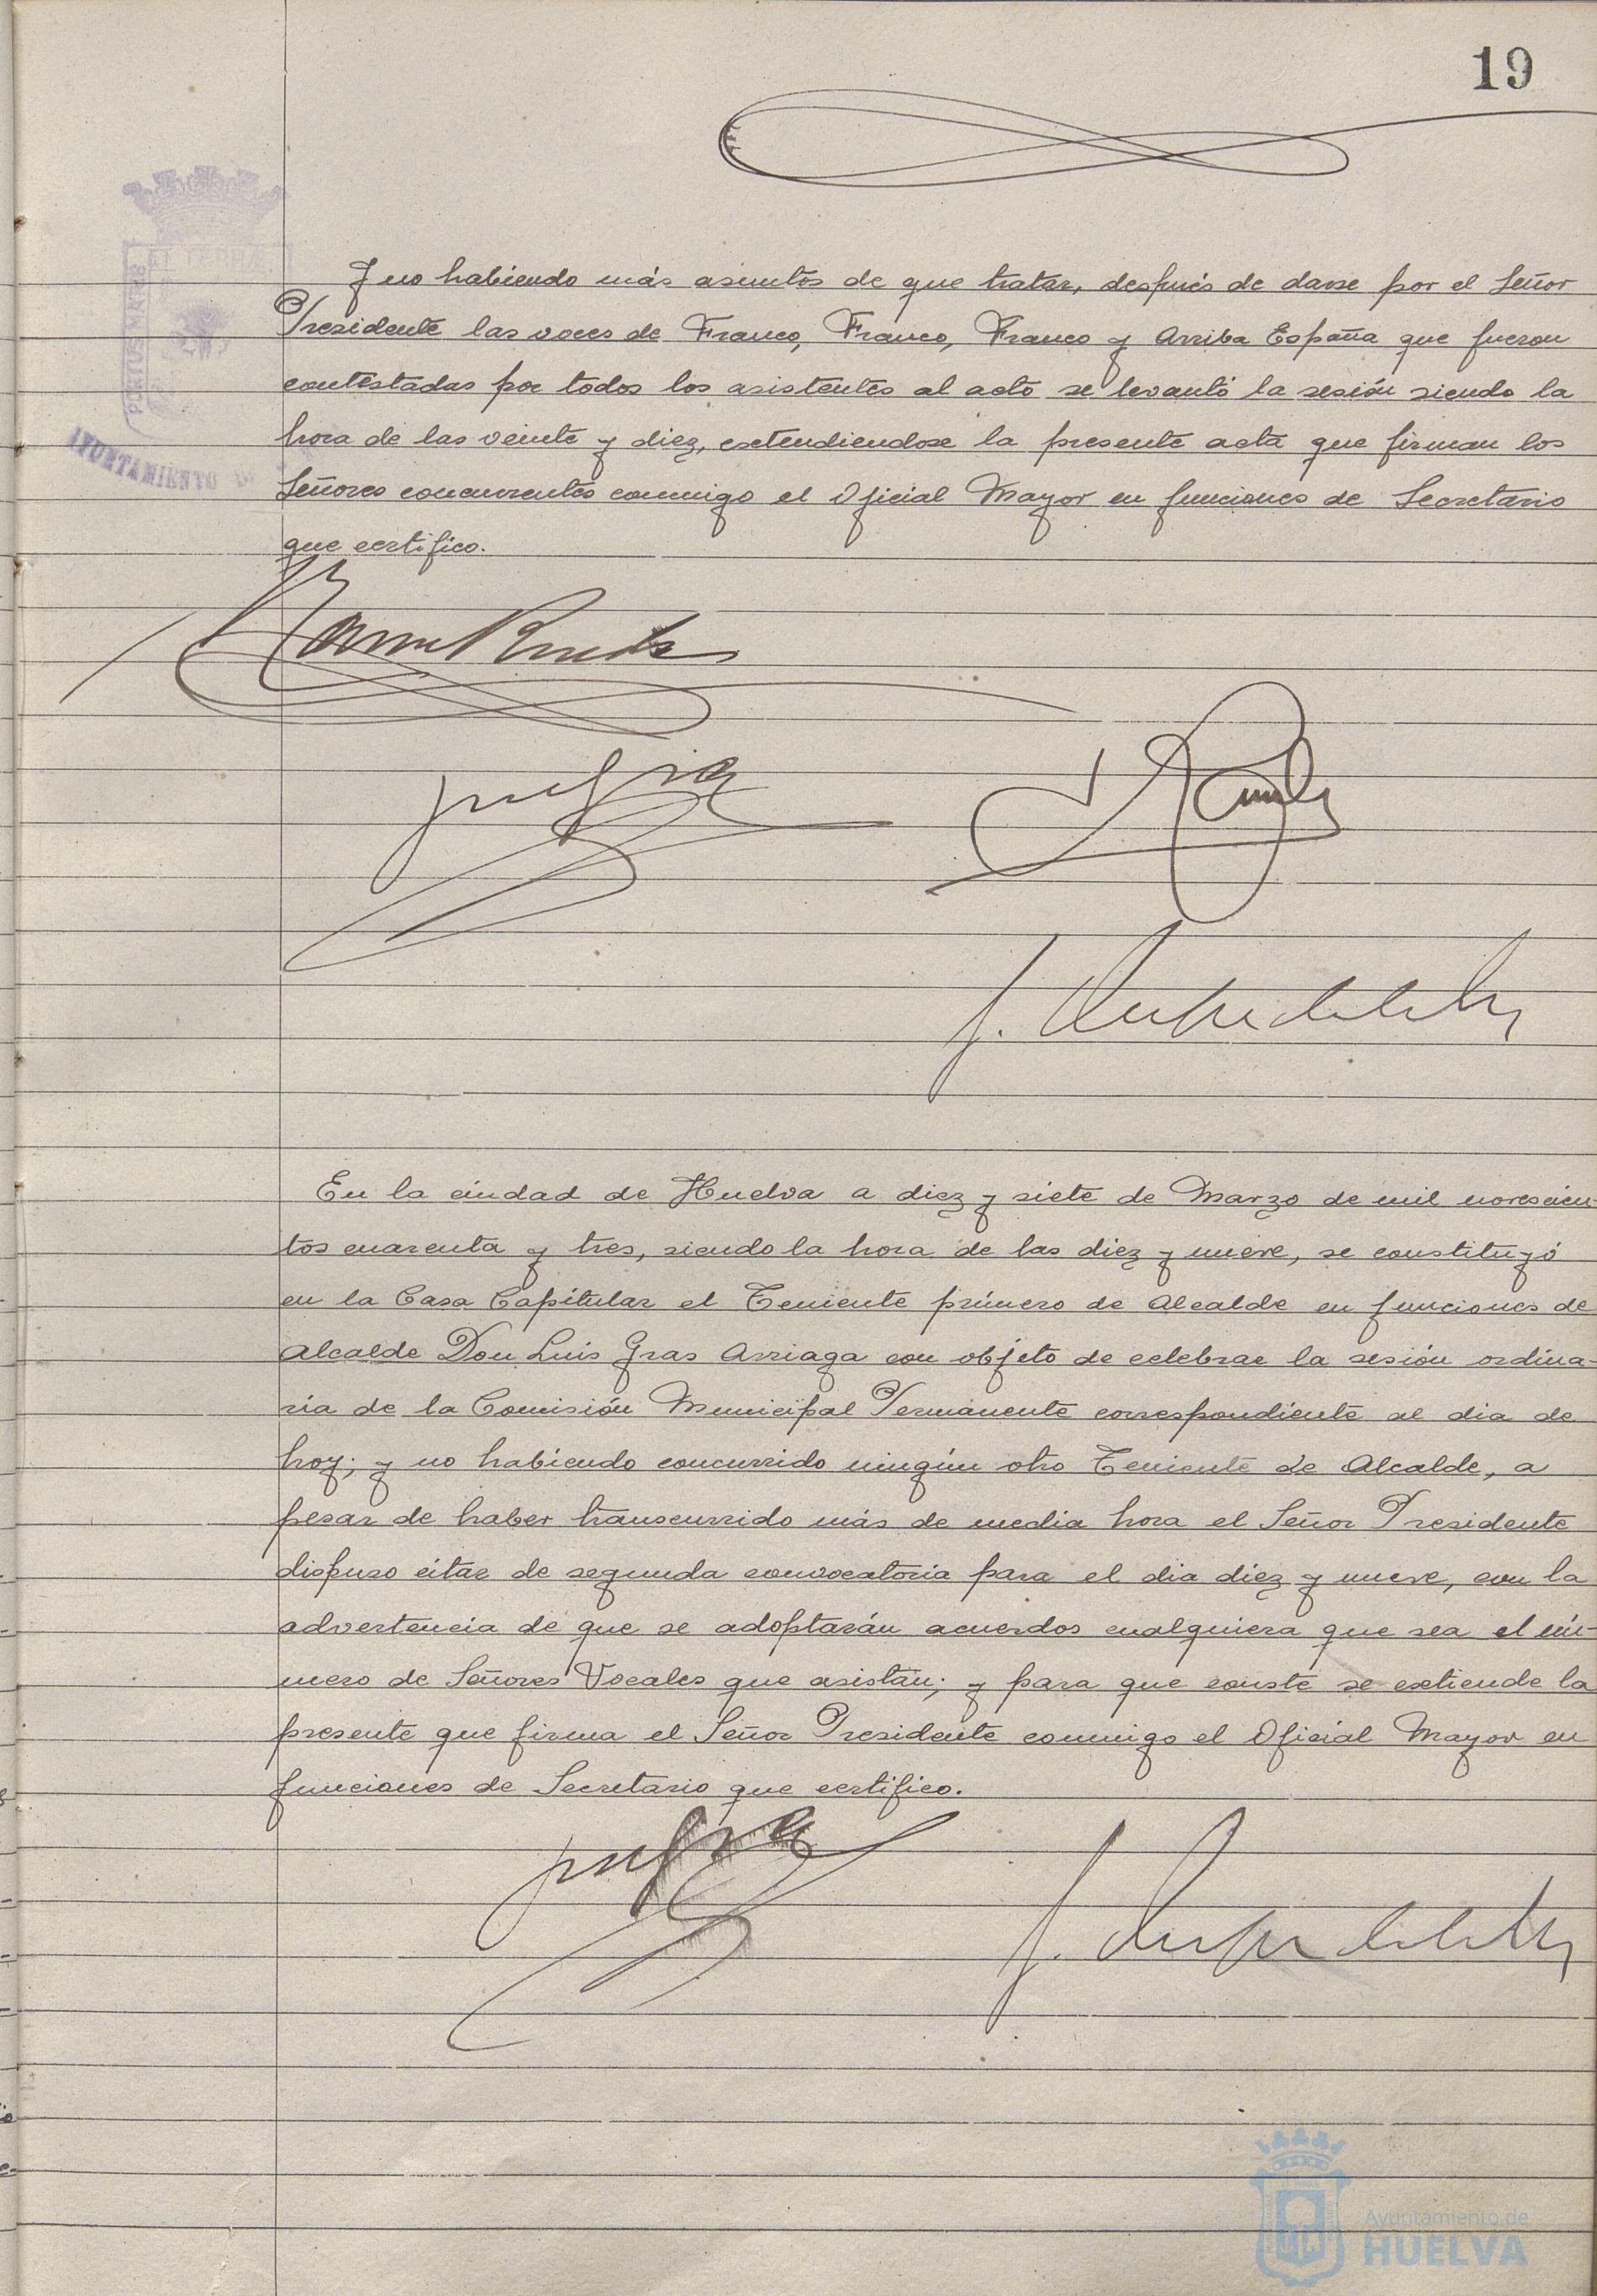 19
ET TERRAE
PORTUS MARIS
AYUNTAMIENTO DE
Y no habiendo más asuntos de que tratar, después de darse por el Señor
Presidente las voces de Franco, Franco, Franco y Arriba España que fueron
contestadas por todos los asistentes al acto se levantó la sesión siendo la
hora de las veinte y diez, extendiendose la presente acta que firman los
Señores concurrentes conmigo el Oficial Mayor en funciones de Secretario
que certifico.
En la ciudad de Huelva a diez y siete de Marzo de mil novescien-
tos cuarenta y tres, siendo la hora de las diez y nueve, se constituyó
en la Casa Capitular el Teniente primero de Alcalde en funciones de
Alcalde Don Luis Gras Arriaga con objeto de celebrar la sesión ordina-
ria de la Comisión Municipal Permanente correspondiente al dia de
hoy; y no habiendo concurrido ningún otro Teniente de Alcalde, a
pesar de haber transcurrido más de media hora el Señor Presidente
dispuso citar de segunda convocatoria para el dia diez y nueve, con la
advertencia de que se adoptarán acuerdos cualquiera que sea el nú-
mero de Señores Vocales que asistan; y para que conste se extiende la
presente que firma el Señor Presidente conmigo el Oficial Mayor en
funciones de Secretario que certifico.
Ayuntamiento de
HUELVA